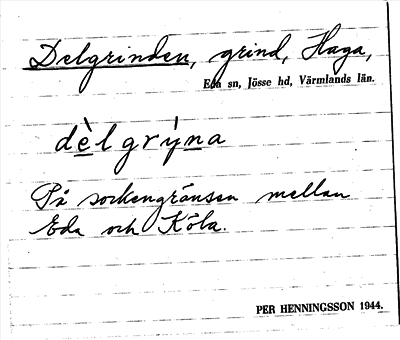 Delgrinden, grind, Haga,
Eda sn, Jösse hd, Värmlands län.
dèlgrýna
På sockengränsen mellan
Eda och Köla.
PER HENNINGSSON 1944.